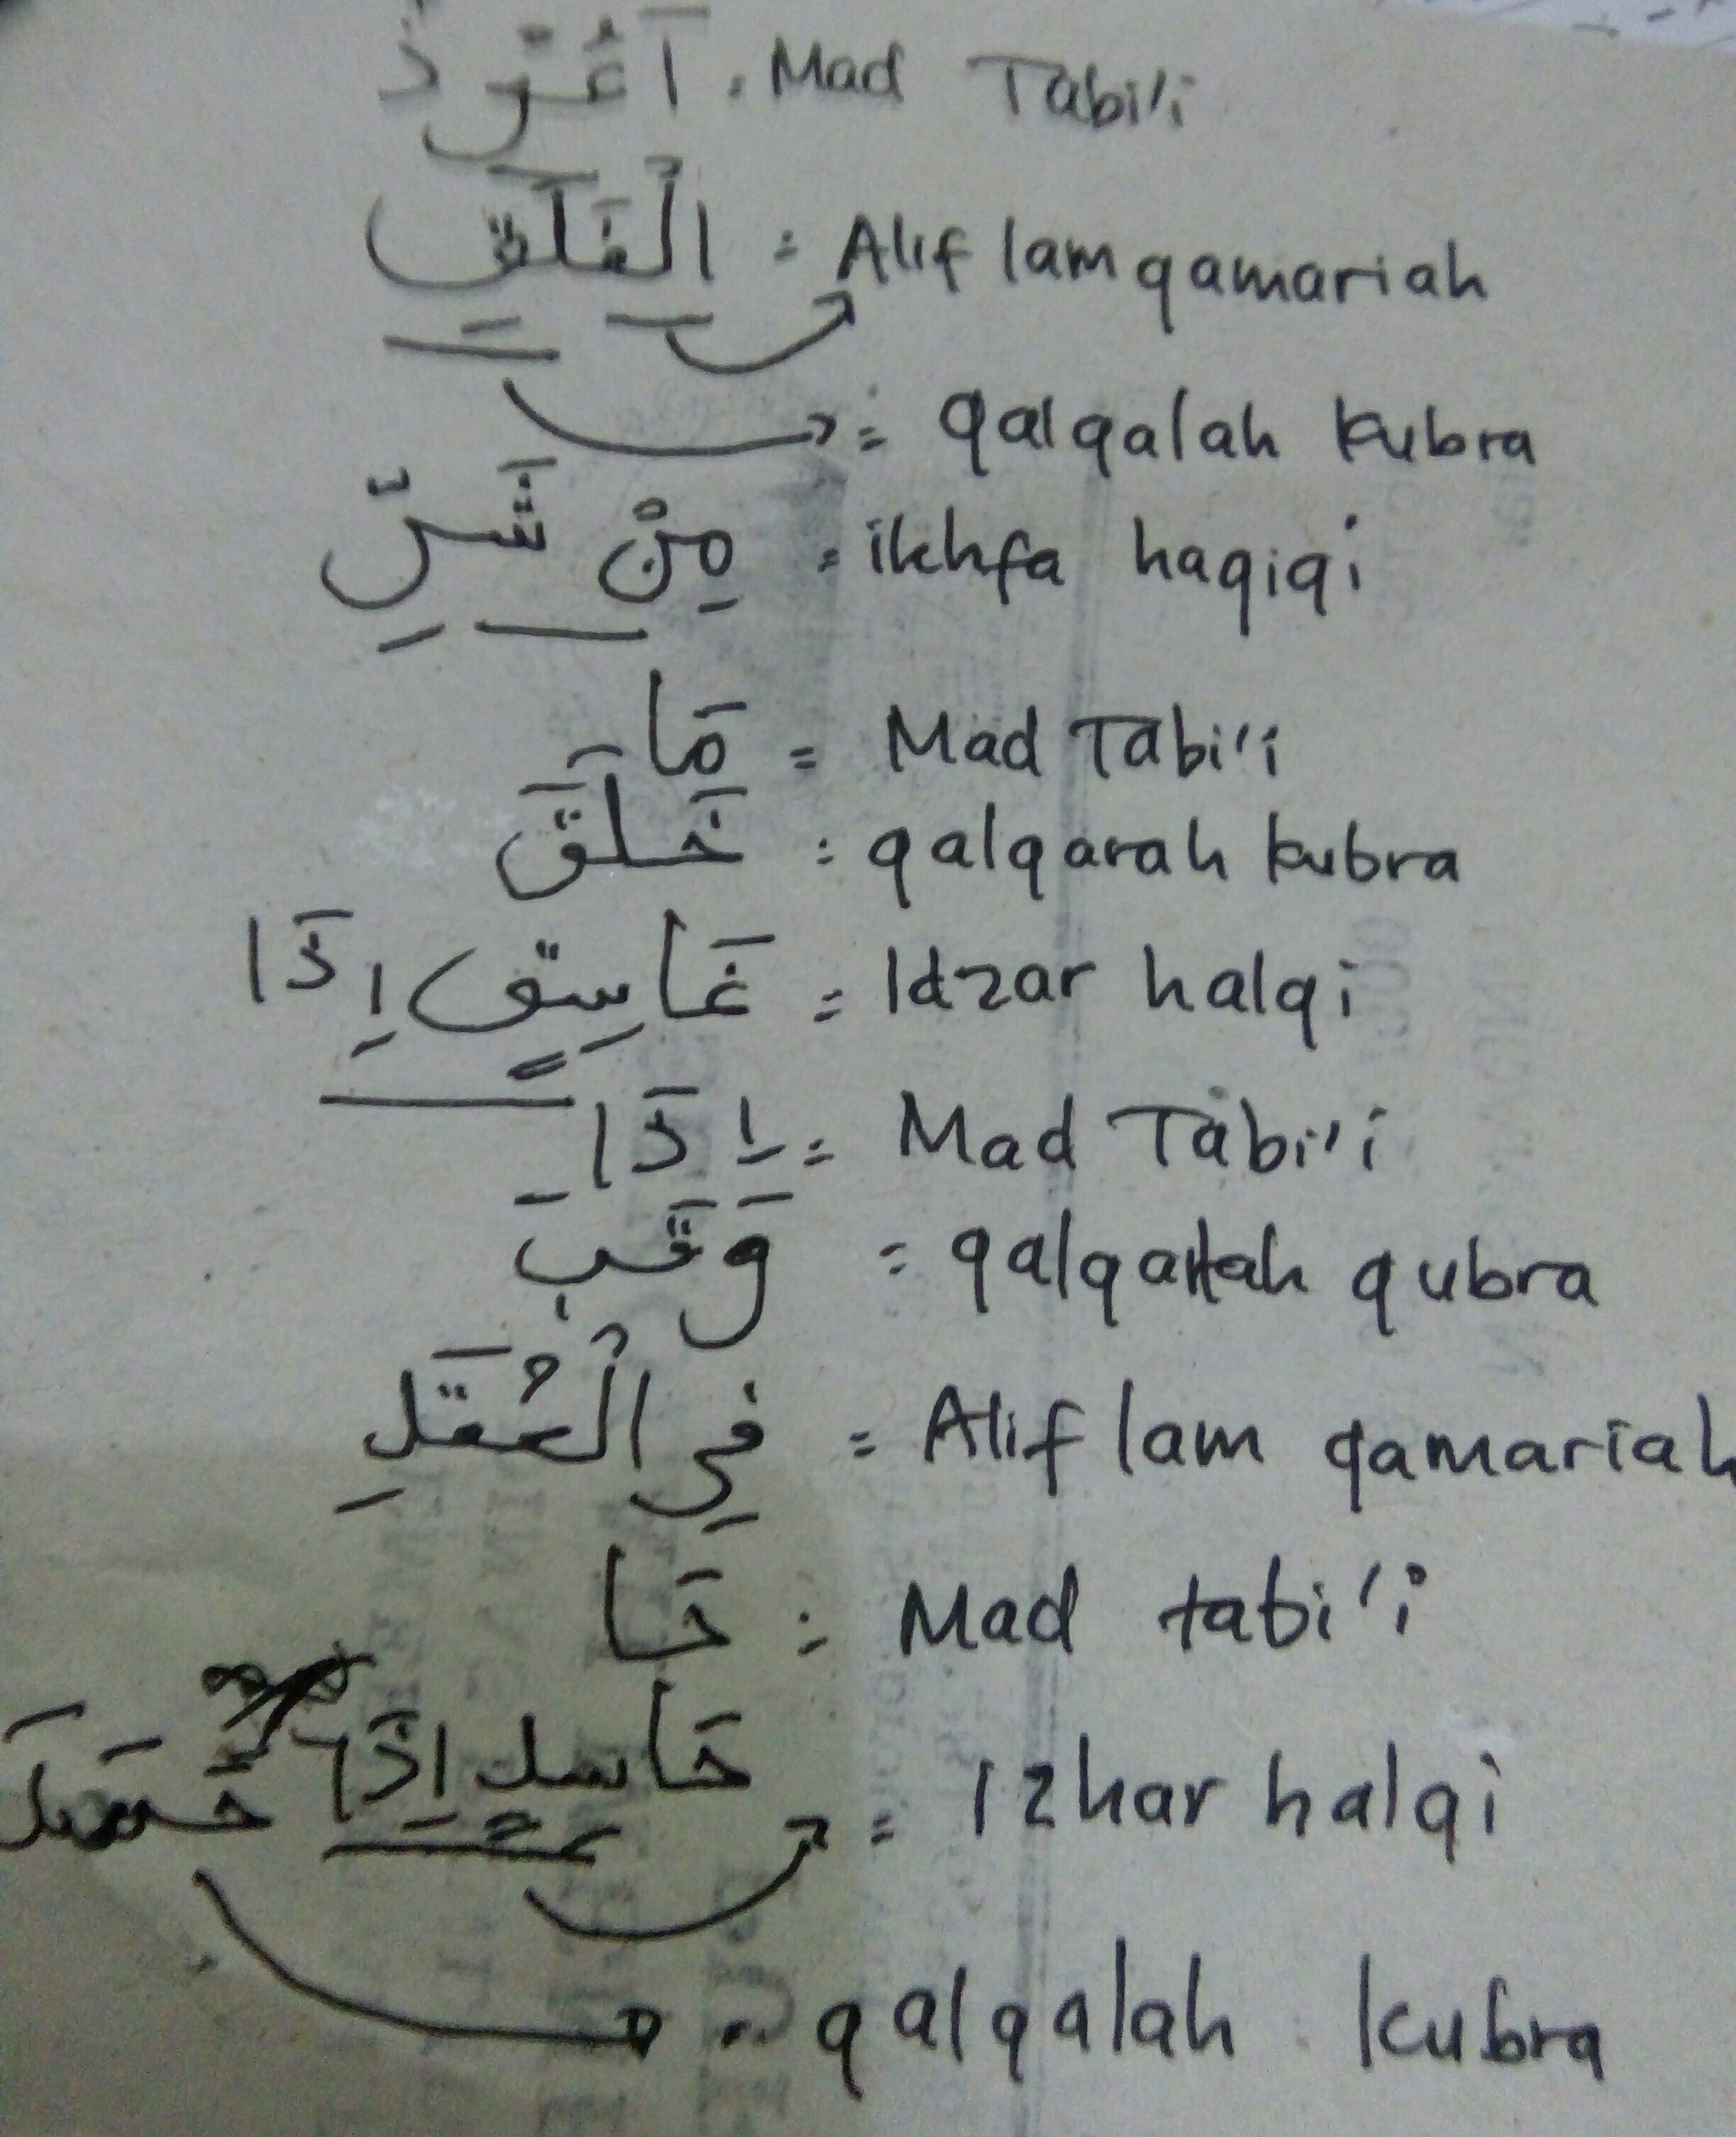 اَعُوْذُ . Mad Tabi'i
الْفَلَقِ = Alif lam qamariah
= qalqalah kubra
مِنْ شَرِّ = ikhfa haqiqi
مَا = Mad Tabi'i
خَلَقَ : qalqarah kubra
غَاسِقٍ اِذَا = Idzar halqi
اِذَا = Mad Tabi'i
وَقَبَ = qubra
فِى الْعُقَدِ = Alif lam qamariah
حَا : Mad tabi'i
حَاسِدٍ اِذَا حَسَدَ = Izhar halqi
qalqalah kubra